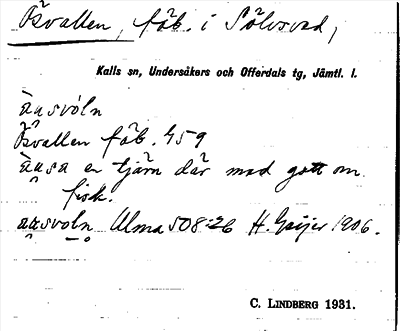 Ösvallen, fäb. i Sölvsved,
Kalls sn, Undersåkers och Offerdals tg, Jämtl. l.
ä̀ₐsvóln
Ösvallen fäb. G59
ä̀ₐsa en tjärn där med gott om
fisk.
aasvoln Ulma 508:26 H. Geijer 1906.
C. LINDBERG 1931.